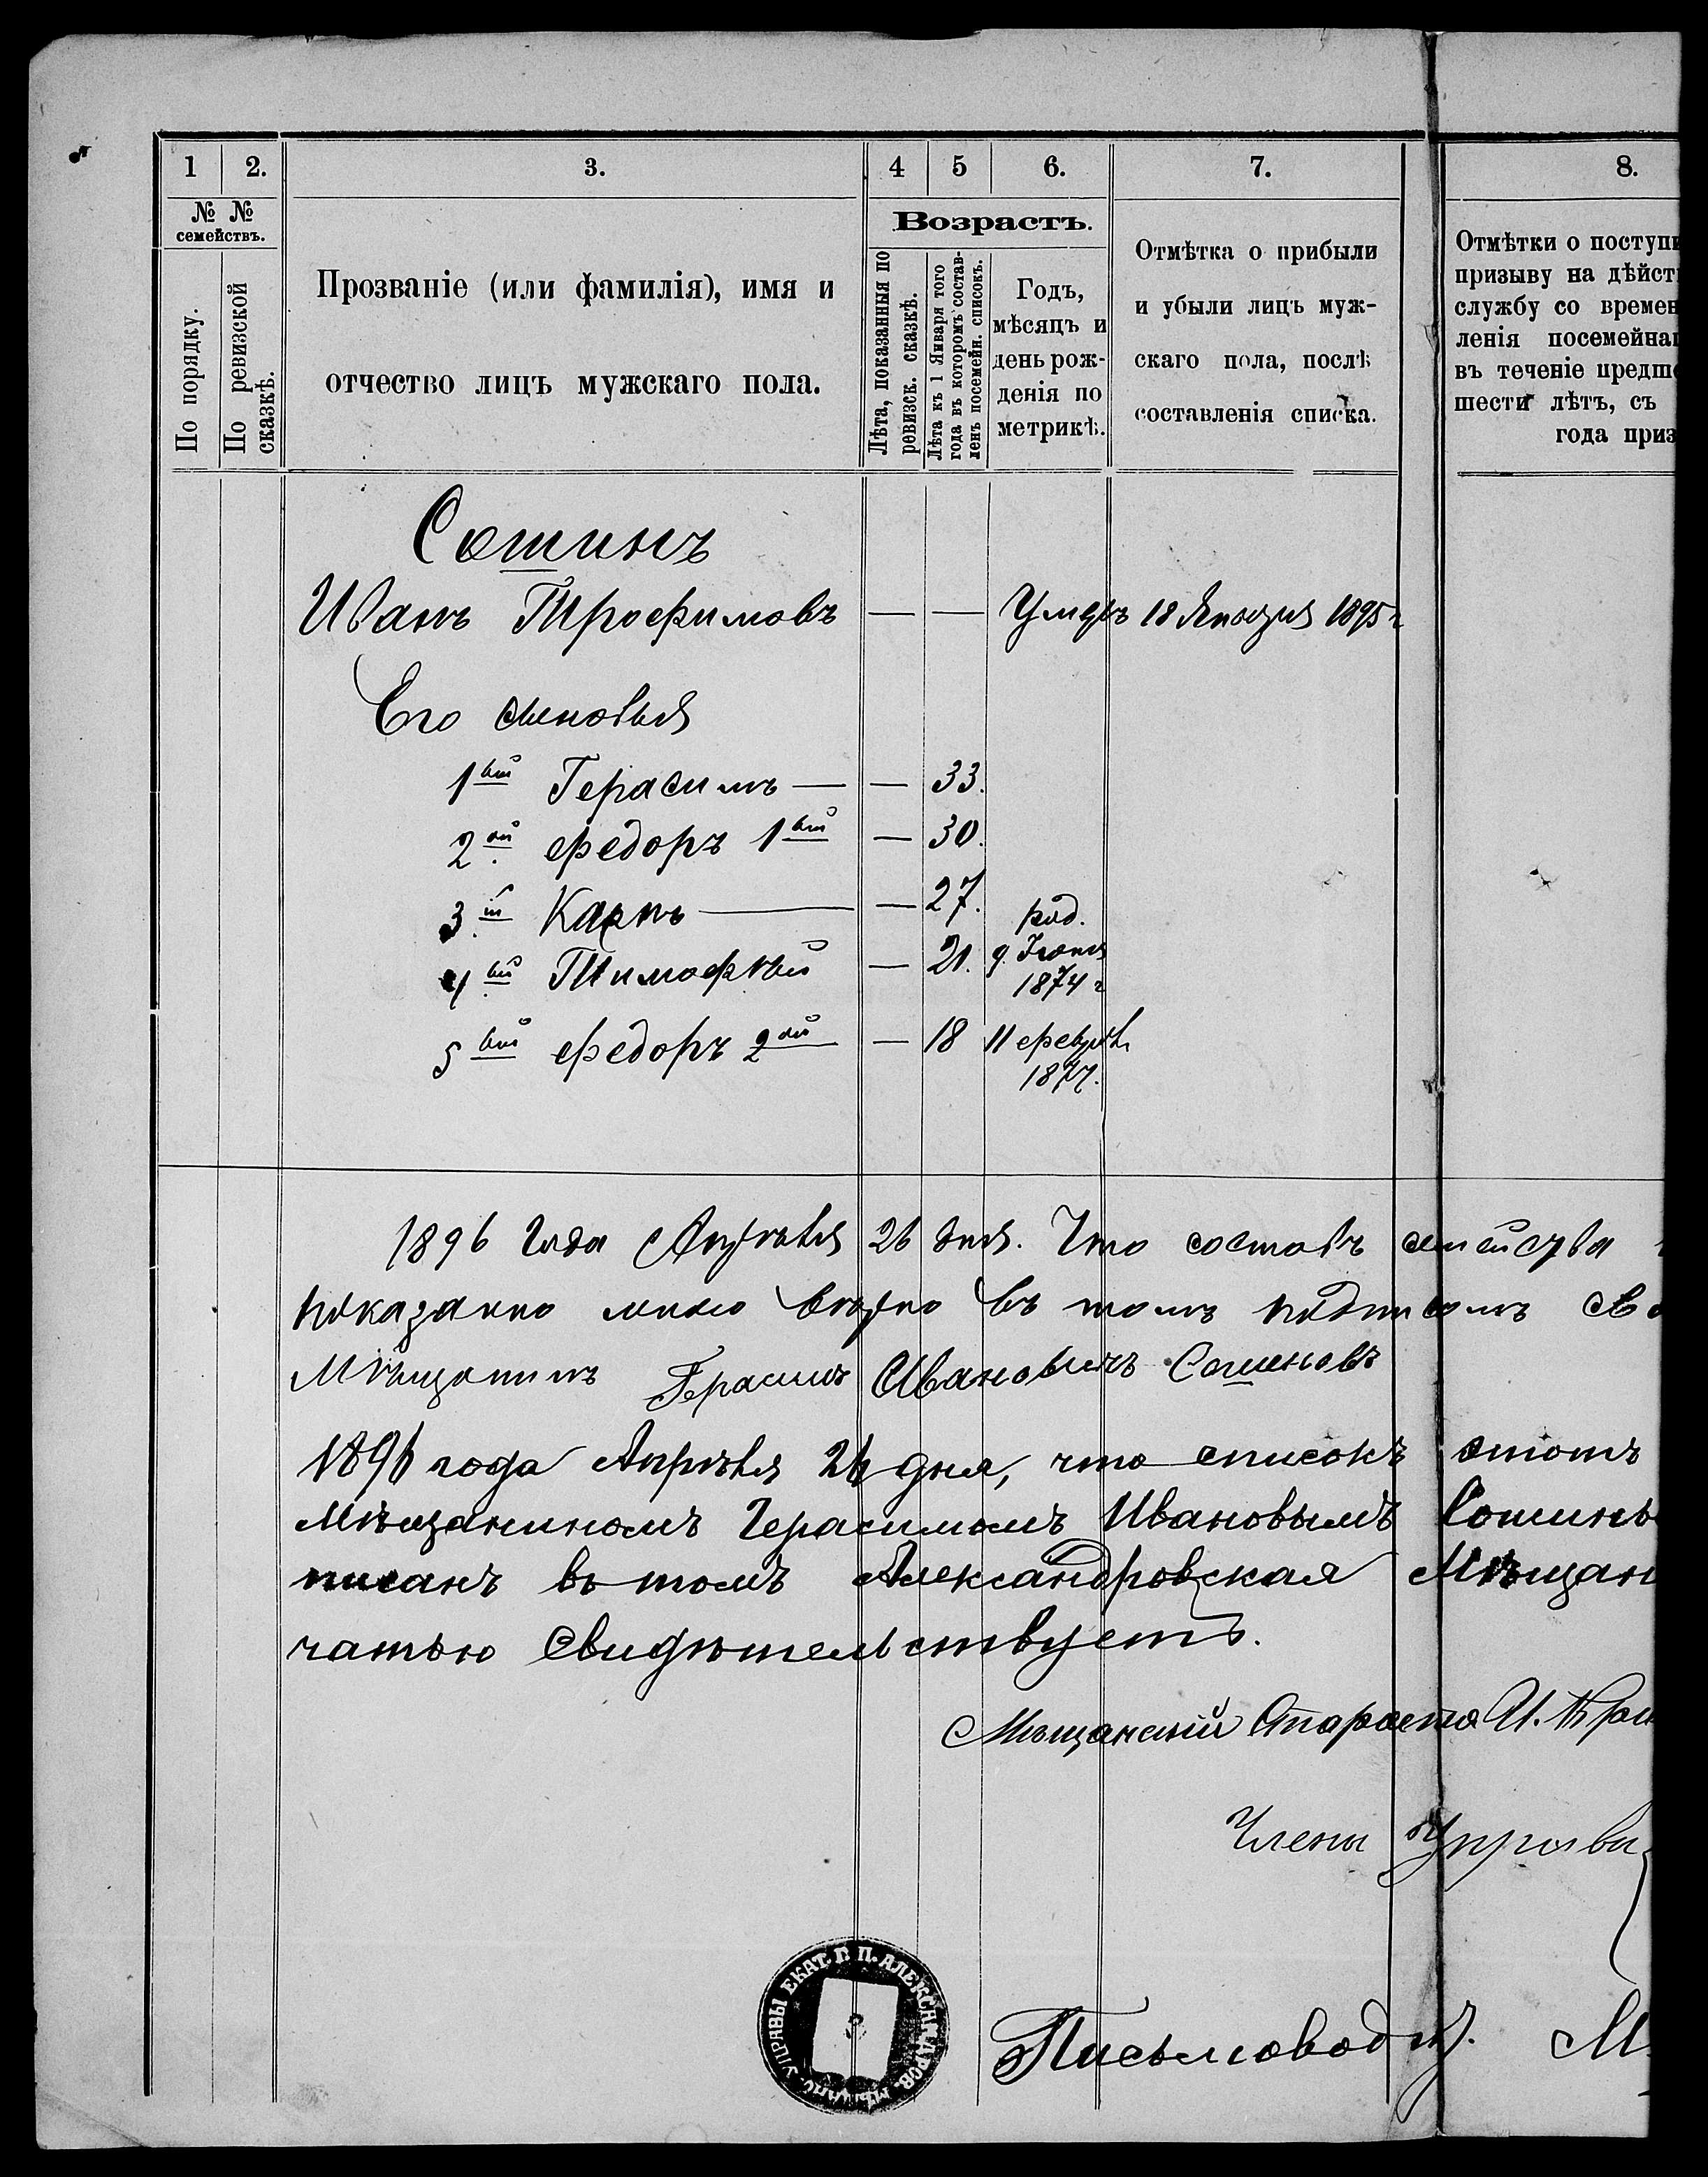 1 2. 3. 4 5 6. 7. 8.
№ № семействъ.
По порядку.
По ревизской сказкѣ.
Прозваніе (или фамилія), имя и
отчество лицъ мужскаго пола.
Возрастъ.
Лѣта, показанныя по
ревизск. сказкѣ.
Лѣта къ 1 Января того
года въ которомъ состав-
ленъ посемейн. списокъ.
Годъ,
мѣсяцъ и
день рож-
денія по
метрикѣ.
Отмѣтка о прибыли
и убыли лицъ муж-
скаго пола, послѣ
составленія списка.
Отмѣтки о поступ
призыву на дѣйст
службу со времен
ленія посемейна
въ теченіе предш
шести лѣтъ, съ
года приз
Сошинъ
Иванъ Трофимовъ — — Умеръ 18 1895 г
Его сыновья
1вый Герасимъ — — 33.
2ой Федоръ 1вый — 30.
3ій Карпъ — — 27.
4ый Тимофѣй — 21. род. 9 Іюня 1874 г
5тый Федоръ 2ой — 18 11 февраля 1877.
1896 года Апрѣля 26 дня. Что составъ семейства
показанно мною вѣрно въ томъ подписомъ
Мѣщанинъ Герасимъ Ивановичъ
1896 года Апрѣля 26 дня, что списокъ этотъ
Мѣщаниномъ Герасимомъ Ивановымъ Сошинъ
писанъ въ томъ Александровская Мѣщан
чатью свидѣтельствуетъ.
Мѣщанскій Староста И.
Члены Управы
Письмоводит. М.
УПРАВЫ ЕКАТ. Г. П. АЛЕКСАНДРОВ. МѢЩАНС.